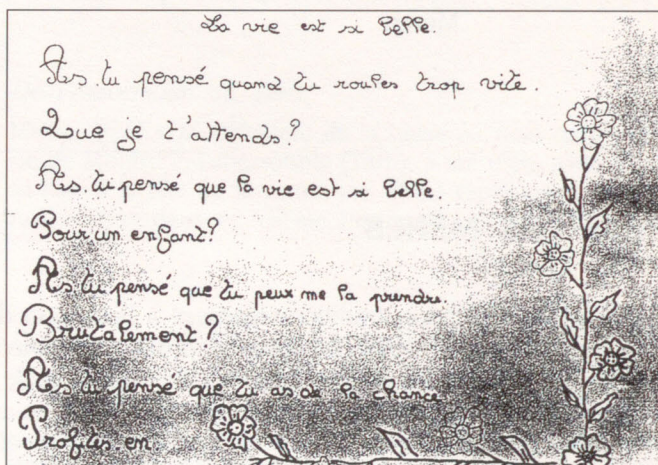 La vie est si belle.
As. tu pensé quand tu roules trop vite.
Que je t'attends?
As. tu pensé que la vie est si belle.
Pour un enfant?
As tu pensé que tu peux me la prendre.
Brutalement?
As tu pensé que tu as de la chance
Profites. en.